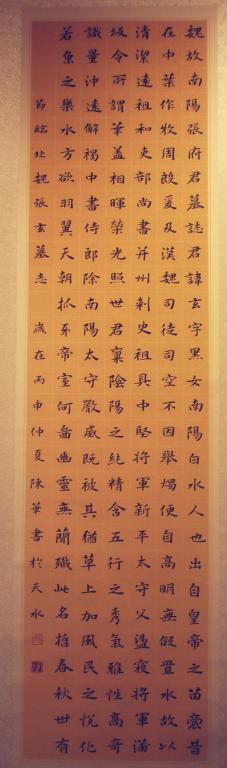 魏故南陽張府君墓誌君諱玄字黑女南陽白水人也出自皇帝之苗裔昔
在中葉作牧周殷爰及漢魏司徒司空不因舉燭便自高明無假置水故以
清潔遠祖和吏部尚書并州剌史祖具中堅將軍新平太守父盪寇將軍蒲
坂令所謂華蓋相暉榮光照世君稟陰陽之純精含五行之秀氣雅性高奇
識量沖遠解褐中書侍郎除南陽太守嚴威既被其猶草上加風民之悅化
若魚之樂水方欲羽翼天朝抓牙帝室何啚幽靈無蘭殲此名哲春秋世有
節臨北魏張玄墓志 歲在丙申仲夏陳華書於天水